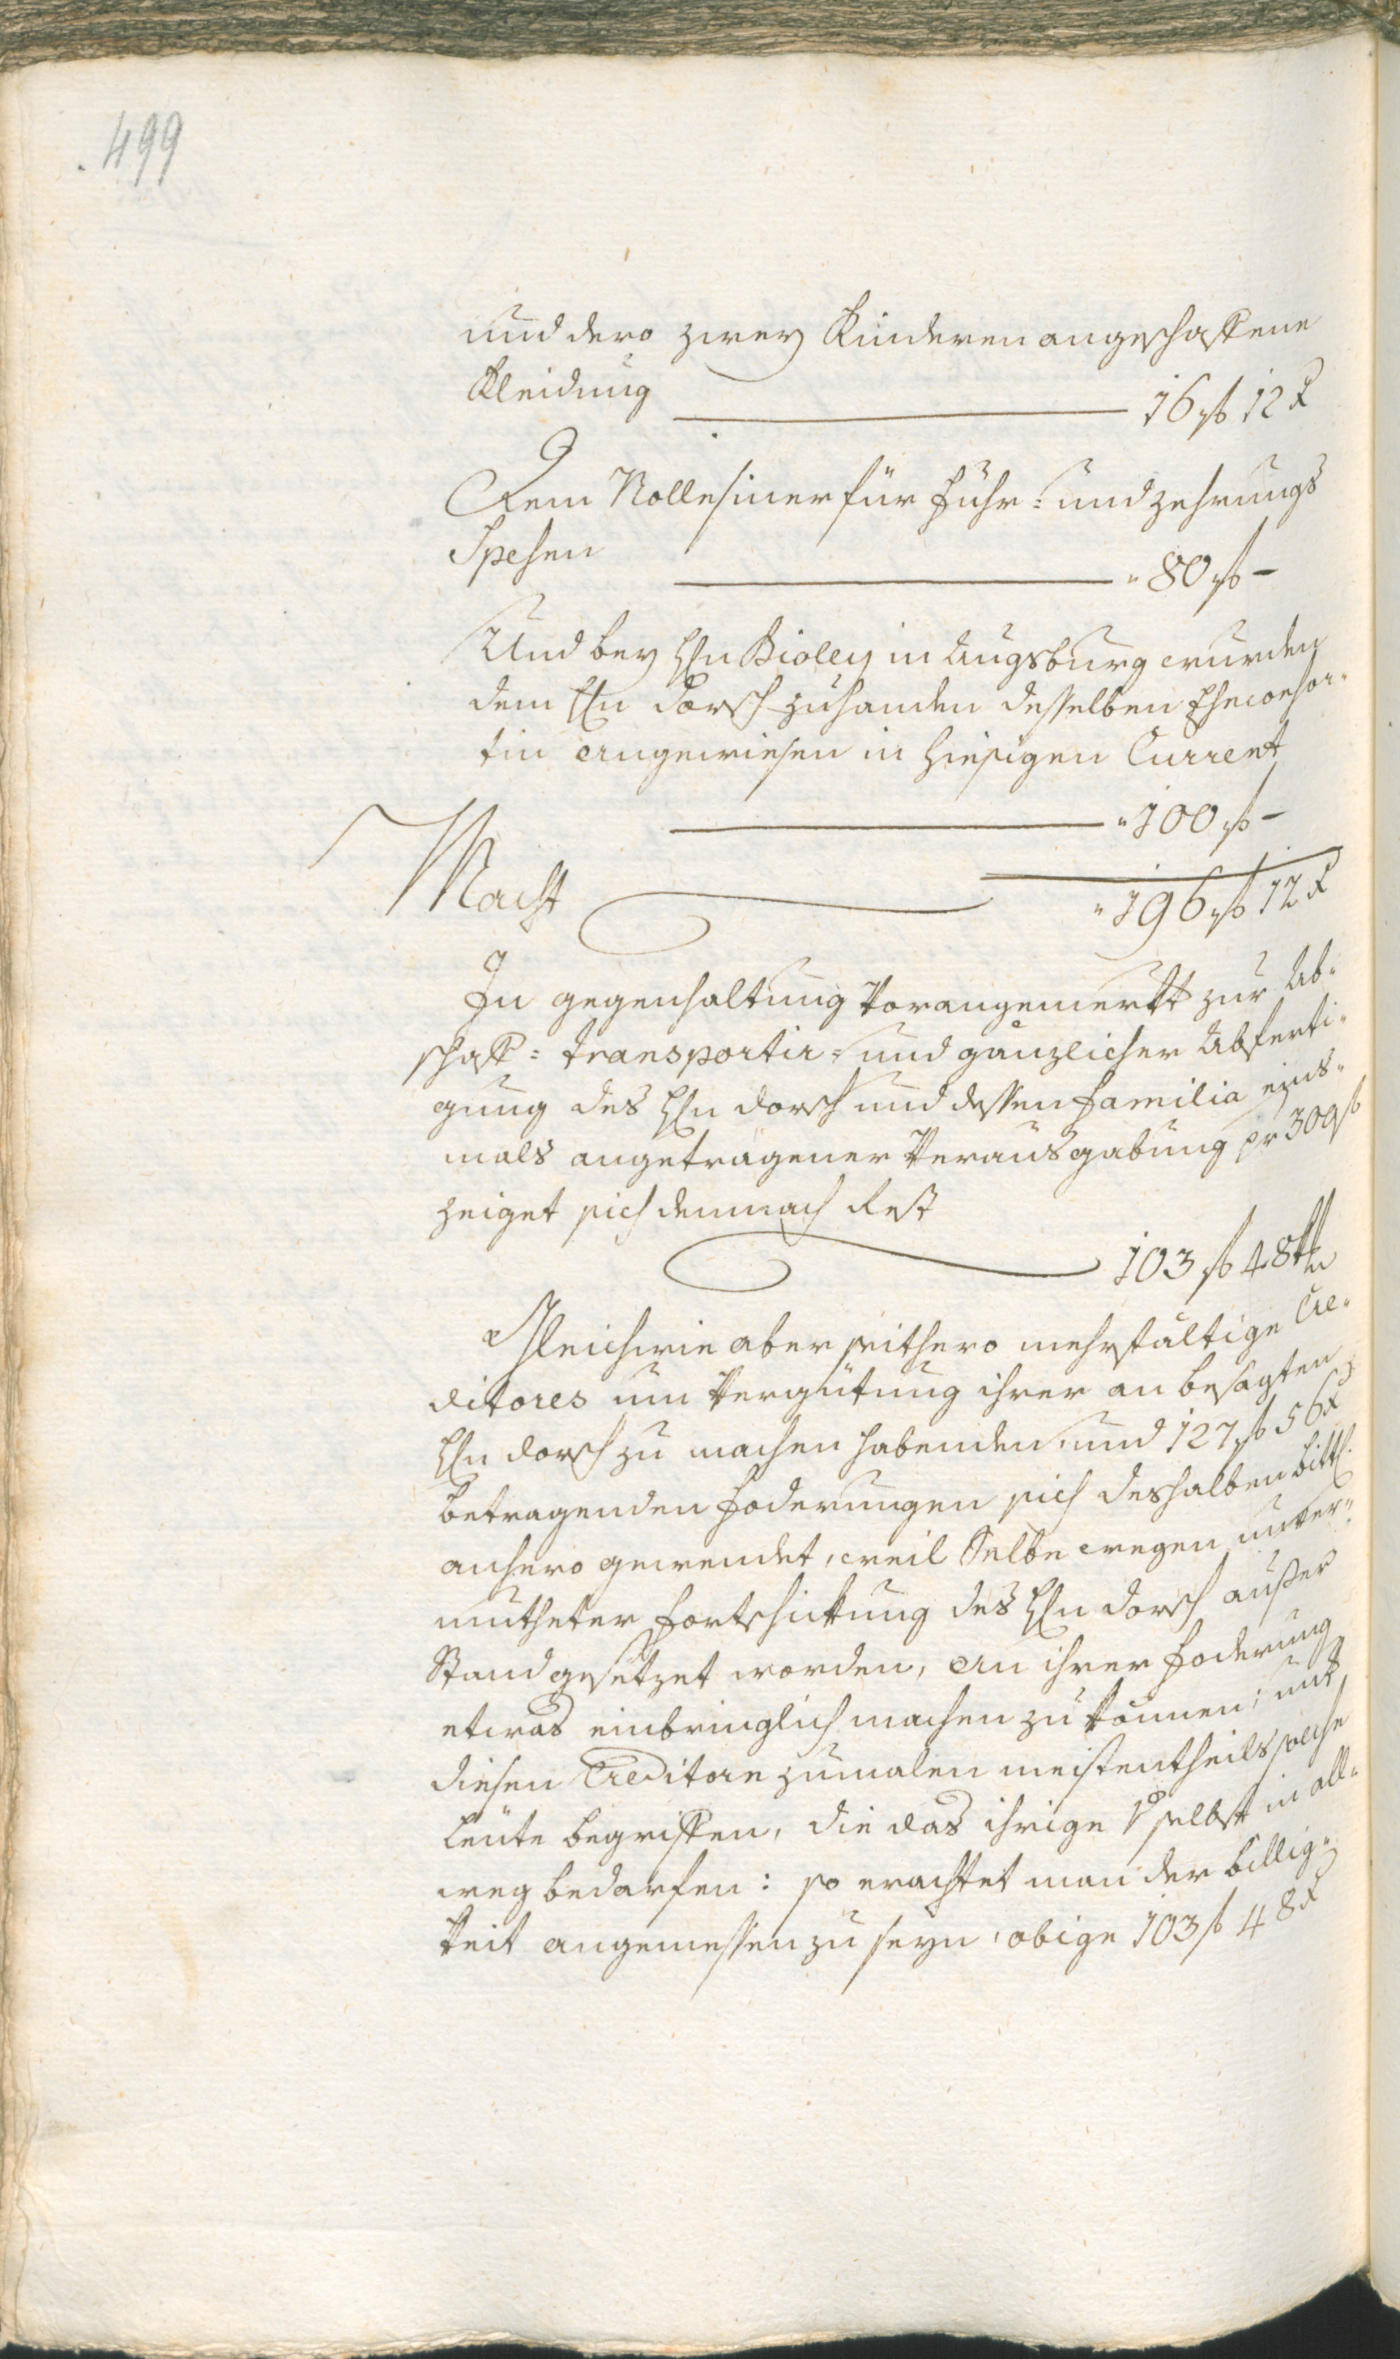 499
und dero zwey Kinderen angeschaffene
Kleidung 16 f 12 x
Dem Rollesiner für Fuhr= und zehrungs
Spesen " 80 f -
Und bey Hn Bioley in Augsburg wurden
dem Hn Dorsch zuhanden desselben Eheconsor-
tin angewiesen in hiesigen Current
" 100 f -
Macht " 196 f 12 x
In gegenhaltung Vorangemerkt zur Ab-
schaff= transportir= und gänzlicher Abferti-
gung des Hn Dorsch und dessen familia eins-
mals angetragener Verausgabung pr 300 f
zeiget sich demnach Rest
103 f 48 kr
Gleichwie aber seithero mehrfältige Cre-
ditores um Vergütung ihrer an besagten
Hn Dorsch zu machen habenden, und 127 f 56 x
betragenden Foderungen sich deshalben bittl.
anhero gewendet, weil Selbe wegen unver-
mutheter Fortschickung des Hn Dorsch außer
Stand gesetzet worden, an ihrer Foderung
etwas einbringlich machen zu können; unt
diesen Creditorn zumalen meistentheils solche
Leüte begriffen, die das ihrige selbst in all-
weg bedarfen: so erachtet man der billig-
keit angemessen zu seyn, obige 103 f 48 x